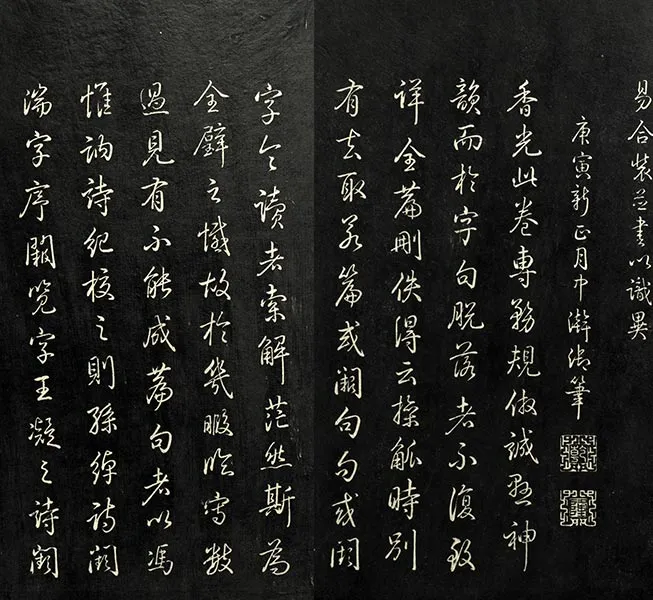 易合裝並書以識異
庚寅新正月中澣御筆
香光此卷專務規倣誠懸神
韻而於字句脫落者不復致
詳全篇刪佚得云操觚時別
有去取若篇或闕句句或闕
字令讀者索解茫然斯為
全璧之憾故於幾暇臨寫數
過見有不能成篇句者以馮
惟訥詩紀校之則孫綽詩闕
湍字序闕覽字王凝之詩闕